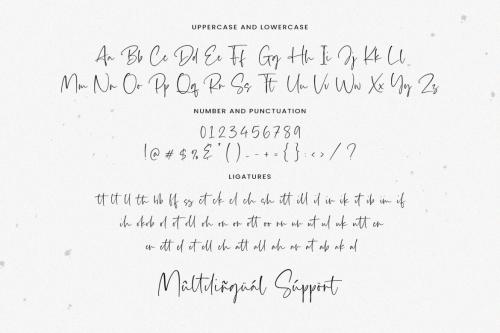 UPPERCASE AND LOWERCASE
Aa Bb Cc Dd Ee Ff Gg Hh Ii Jj Kk Ll
Mm Nn Oo Pp Qq Rr Ss Tt Uu Vv Ww Xx Yy Zz
NUMBER AND PUNCTUATION
0123456789
!@#$%&*()_-+={}:<>/?
LIGATURES
tt lt ll th bb ff ss ct ck cl ch sh itt ill il in ik it ib im if
ch ot oll oh on or ott oo rn ur ut ul uk utt en
er ett el et ell eh att all ah ar at ab ak al
Mûltilìñgüál Súppórt